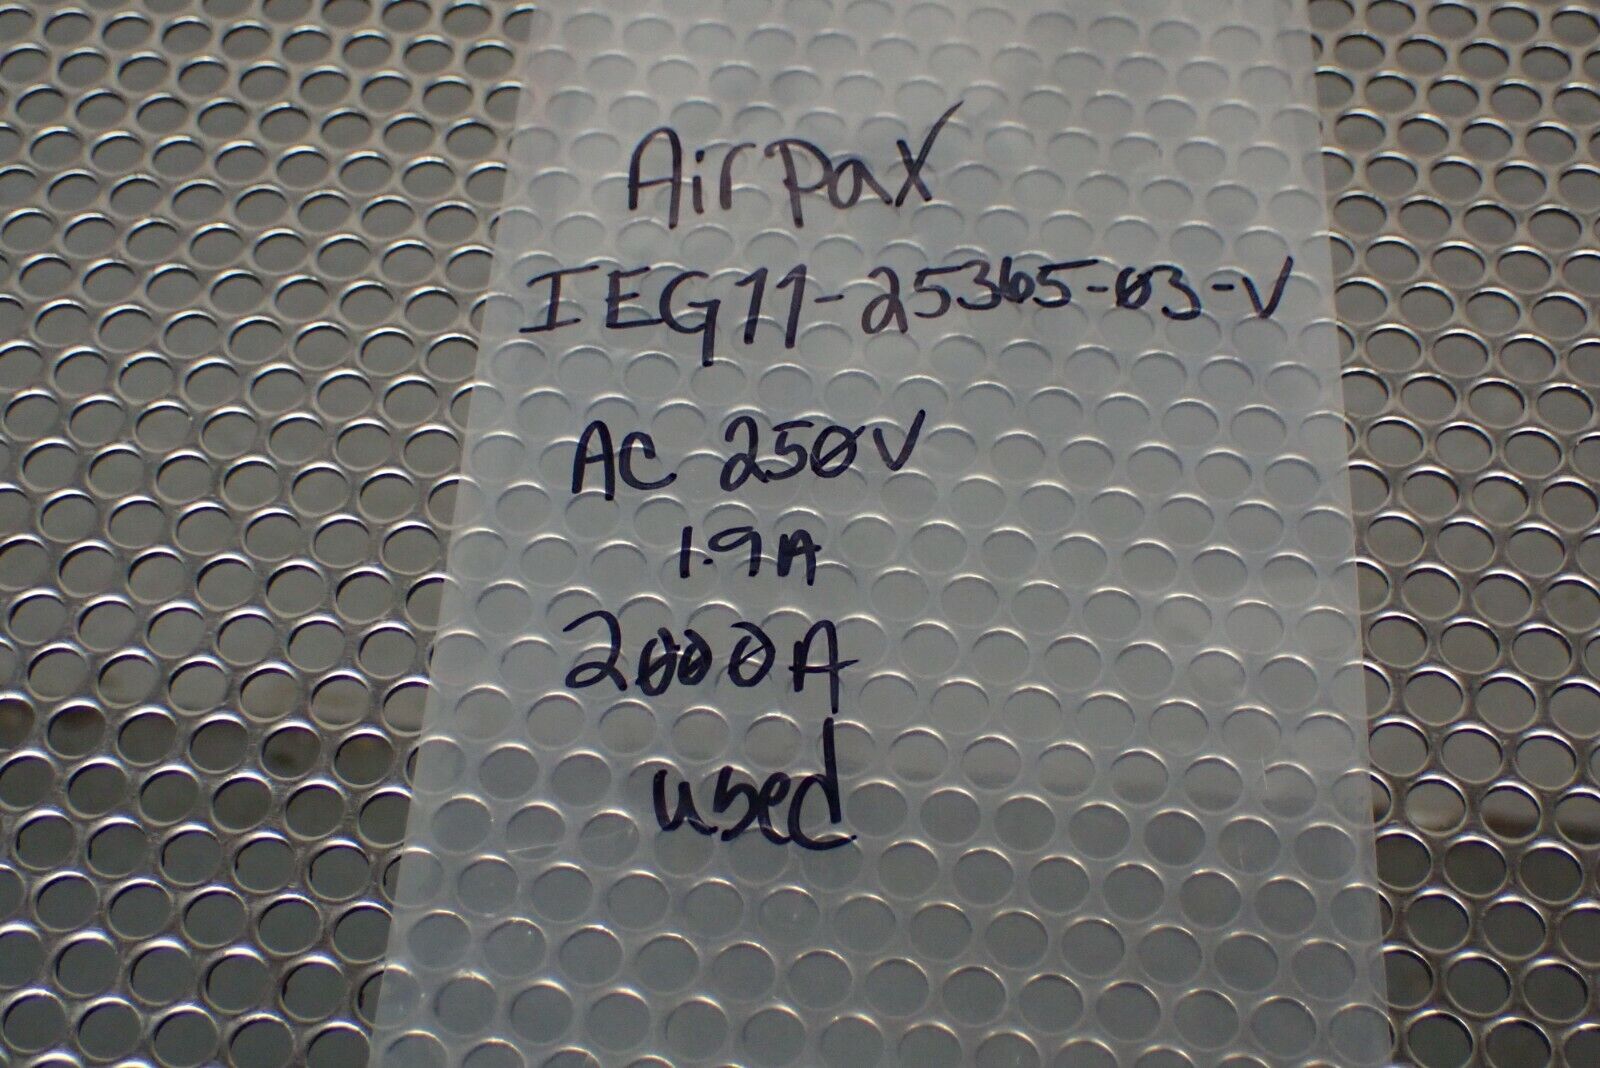 Airpax
IEG11-25365-03-V
AC 250V
1.9A
2000A
used